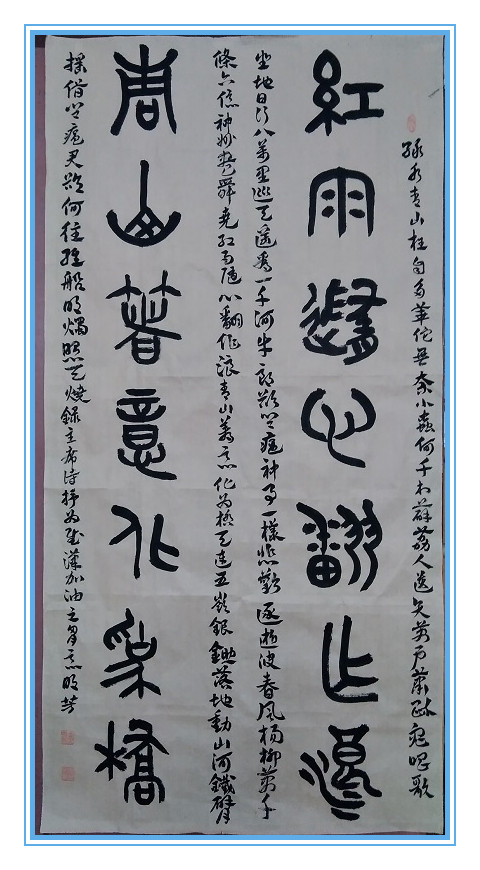 綠水青山枉自多華佗無奈小蟲何千村薜荔人遗矢萬户蕭疏鬼唱歌
紅雨隨心翻作浪
坐地日行八萬里巡天遥看一千河牛郎欲问瘟神事一樣悲歡逐逝波春風楊柳萬千
條六億神州盡舜堯红雨随心翻作浪青山着意化为橋天连五嶺銀鋤落地動山河鐵臂
青山著意化為橋
摇借问瘟君欲何往纸船明燭照天燒錄主席诗抒为武漢加油之